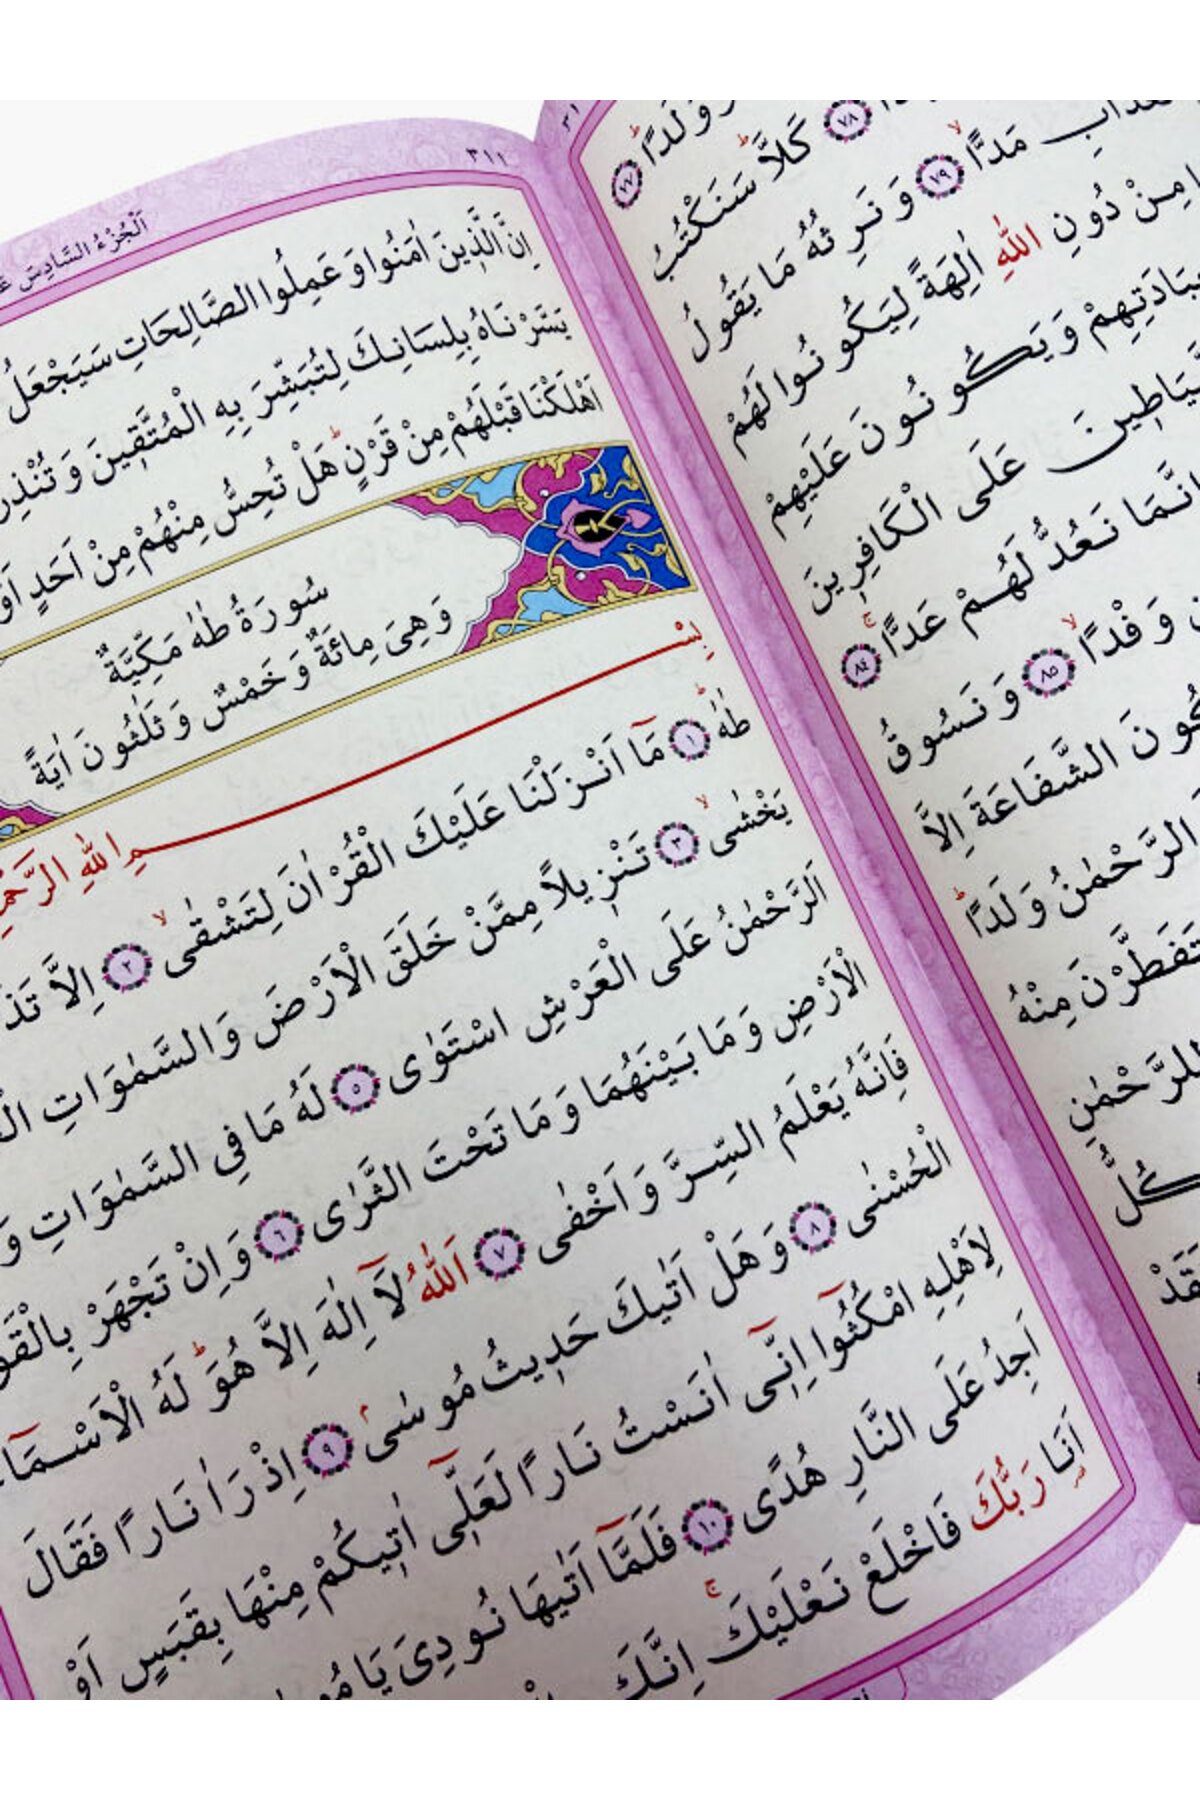 وَوَلَدًا ﴿٧٧﴾
﴿٧٨﴾ كَلَّا سَنَكْتُبُ
الْعَذَابِ مَدًّا ﴿٧٩﴾ وَنَرِثُهُ مَا يَقُولُ
مِنْ دُونِ اللّٰهِ اٰلِهَةً لِيَكُونُوا لَهُمْ
بِعِبَادَتِهِمْ وَيَكُونُونَ عَلَيْهِمْ
الشَّيَاطِينَ عَلَى الْكَافِرِينَ
اِنَّمَا نَعُدُّ لَهُمْ عَدًّا ﴿٨٤﴾
وَفْدًا ﴿٨٥﴾ وَنَسُوقُ
يَمْلِكُونَ الشَّفَاعَةَ اِلَّا
الرَّحْمٰنُ وَلَدًا
يَتَفَطَّرْنَ مِنْهُ
لِلرَّحْمٰنِ
كُلُّ
لَقَدْ
٣١١
اَلْجُزْءُ السَّادِسَ
اِنَّ الَّذِينَ اٰمَنُوا وَعَمِلُوا الصَّالِحَاتِ سَيَجْعَلُ
يَسَّرْنَاهُ بِلِسَانِكَ لِتُبَشِّرَ بِهِ الْمُتَّقِينَ وَتُنْذِرَ
اَهْلَكْنَا قَبْلَهُمْ مِنْ قَرْنٍ هَلْ تُحِسُّ مِنْهُمْ مِنْ اَحَدٍ اَوْ
سُورَةُ طٰهٰ مَكِّيَّةٌ
وَهِيَ مِائَةٌ وَخَمْسٌ وَثَلٰثُونَ اٰيَةً
بِسْمِ اللّٰهِ الرَّحْمٰنِ
طٰهٰ ﴿١﴾ مَٓا اَنْزَلْنَا عَلَيْكَ الْقُرْاٰنَ لِتَشْقٰى ﴿٢﴾ اِلَّا
يَخْشٰى ﴿٣﴾ تَنْزِيلًا مِمَّنْ خَلَقَ الْاَرْضَ وَالسَّمٰوَاتِ
اَلرَّحْمٰنُ عَلَى الْعَرْشِ اسْتَوٰى ﴿٥﴾ لَهُ مَا فِي السَّمٰوَاتِ وَ
الْاَرْضِ وَمَا بَيْنَهُمَا وَمَا تَحْتَ الثَّرٰى ﴿٦﴾ وَاِنْ تَجْهَرْ بِالْقَوْ
فَاِنَّهُ يَعْلَمُ السِّرَّ وَاَخْفٰى ﴿٧﴾ اَللّٰهُ لَٓا اِلٰهَ اِلَّا هُوَ لَهُ الْاَسْمَٓا
الْحُسْنٰى ﴿٨﴾ وَهَلْ اَتٰيكَ حَدِيثُ مُوسٰى ﴿٩﴾ اِذْ رَاٰ نَارًا فَقَالَ
لِاَهْلِهِ امْكُثُٓوا اِنِّٓى اٰنَسْتُ نَارًا لَعَلِّٓى اٰتِيكُمْ مِنْهَا بِقَبَسٍ اَوْ
اَجِدُ عَلَى النَّارِ هُدًى ﴿١٠﴾ فَلَمَّٓا اَتٰيهَا نُودِيَ يَا
اَنَا رَبُّكَ فَاخْلَعْ نَعْلَيْكَ اِنَّكَ